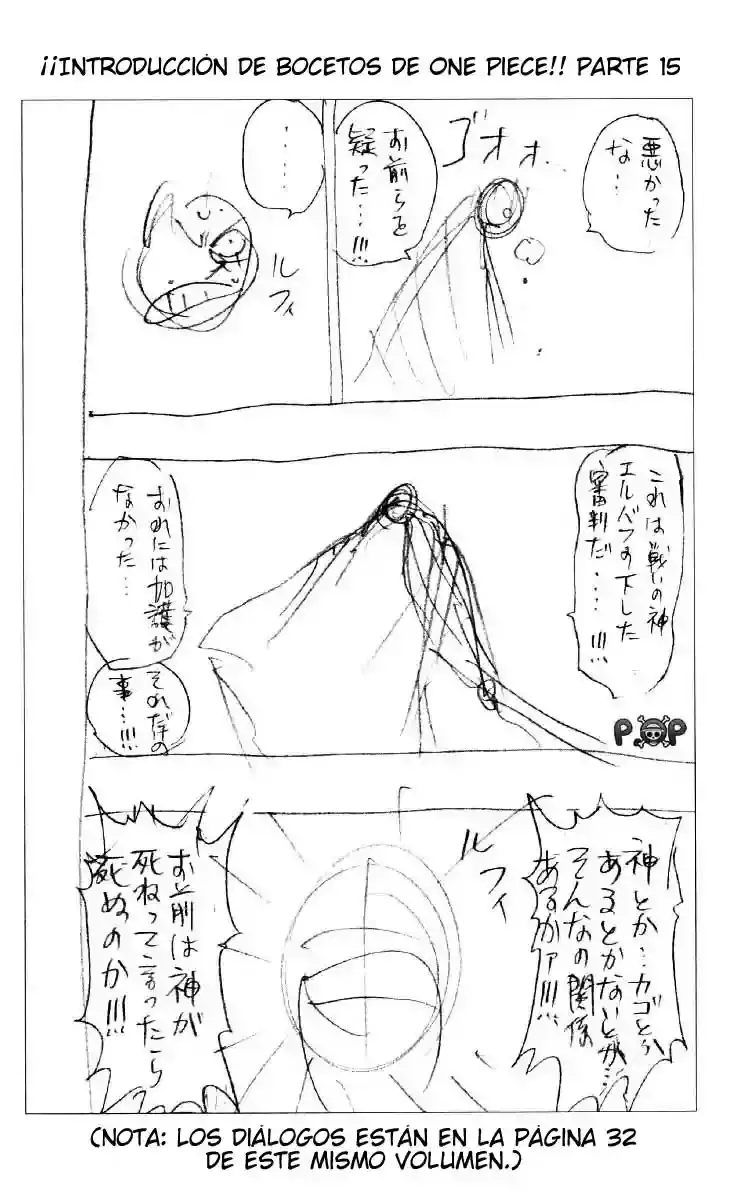 ¡¡INTRODUCCIÓN DE BOCETOS DE ONE PIECE!! PARTE 15
悪かった
な…
ゴオオ
お前らを
疑った…!!!
……
ルフィ
これは戦いの神
エルバフの下した
審判だ…!!!
おれには加護が
なかった…
それだけの
事…!!!
神とか…カゴとか
あるとかないとか…
そんなの関係
あるかァ!!!
ルフィ
お前は神が
死ねって言ったら
死ぬのか!!!
P P
(NOTA: LOS DIÁLOGOS ESTÁN EN LA PÁGINA 32
DE ESTE MISMO VOLUMEN.)